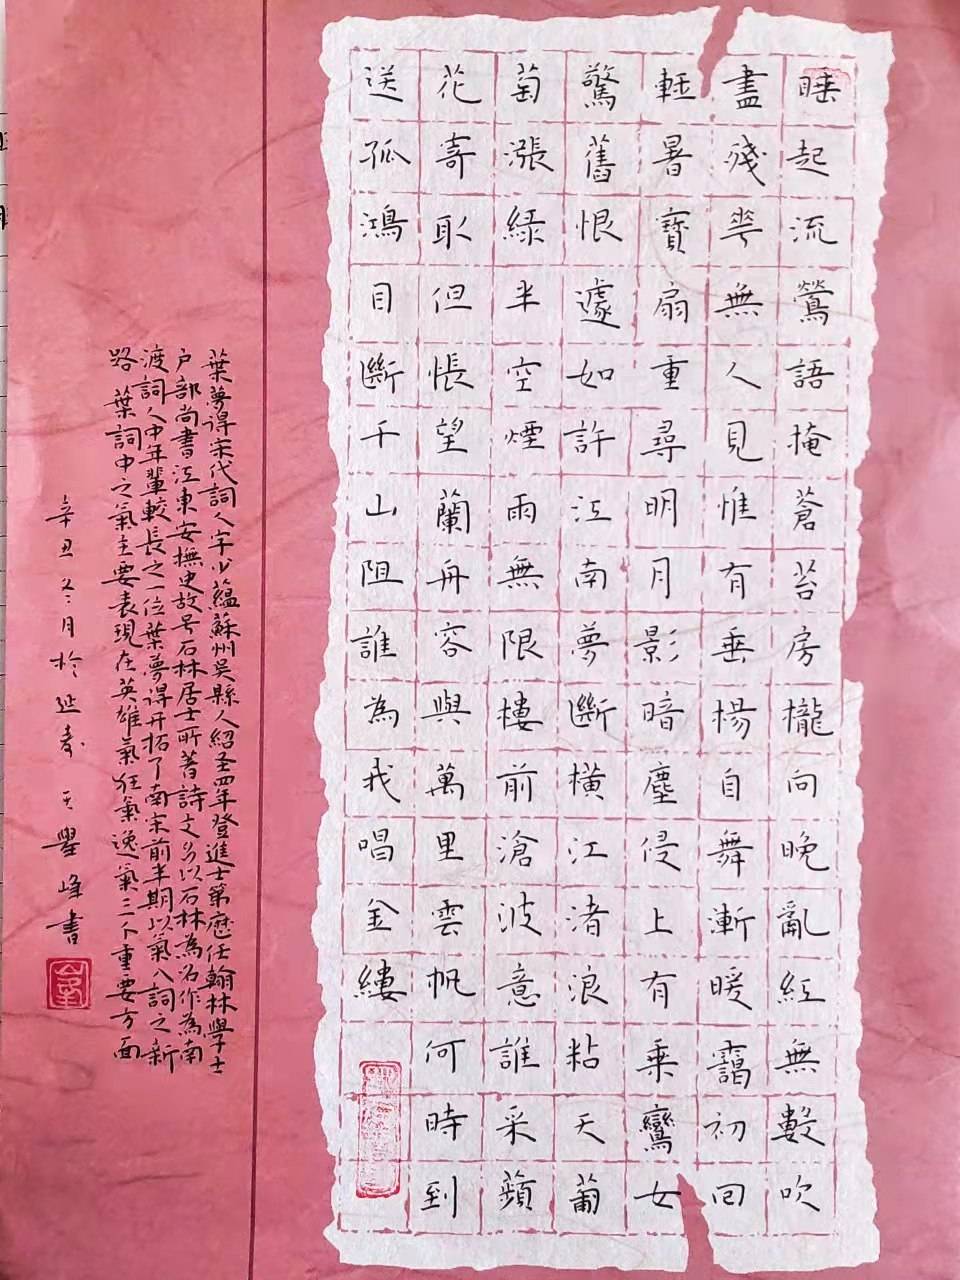 睡起流鶯語掩蒼苔房櫳向晚亂紅無數吹
盡殘華無人見惟有垂楊自舞漸暖靄初回
輕暑寶扇重尋明月影暗塵侵上有乘鸞女
驚舊恨遽如許江南夢斷橫江渚浪粘天葡
萄漲綠半空煙雨無限樓前滄波意誰采蘋
花寄取但悵望蘭舟容與萬里雲帆何時到
送孤鴻目斷千山阻誰為我唱金縷
葉夢得宋代詞人字少蘊蘇州吳縣人紹圣四年登進士第歷任翰林學士
户部尚書江東安撫史故号石林居士所著詩文多以石林為名作為南
渡詞人中年輩較長之一位葉夢得开拓了南宋前半期以氣入詞之新
路葉詞中之氣主要表現在英雄氣狂氣逸氣三个重要方面
辛丑冬月於延寿王舉峰書